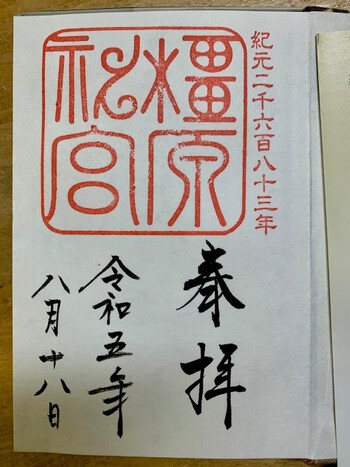 紀元二千六百八十三年
橿原
神宮
奉拝
令和五年
八月十八日